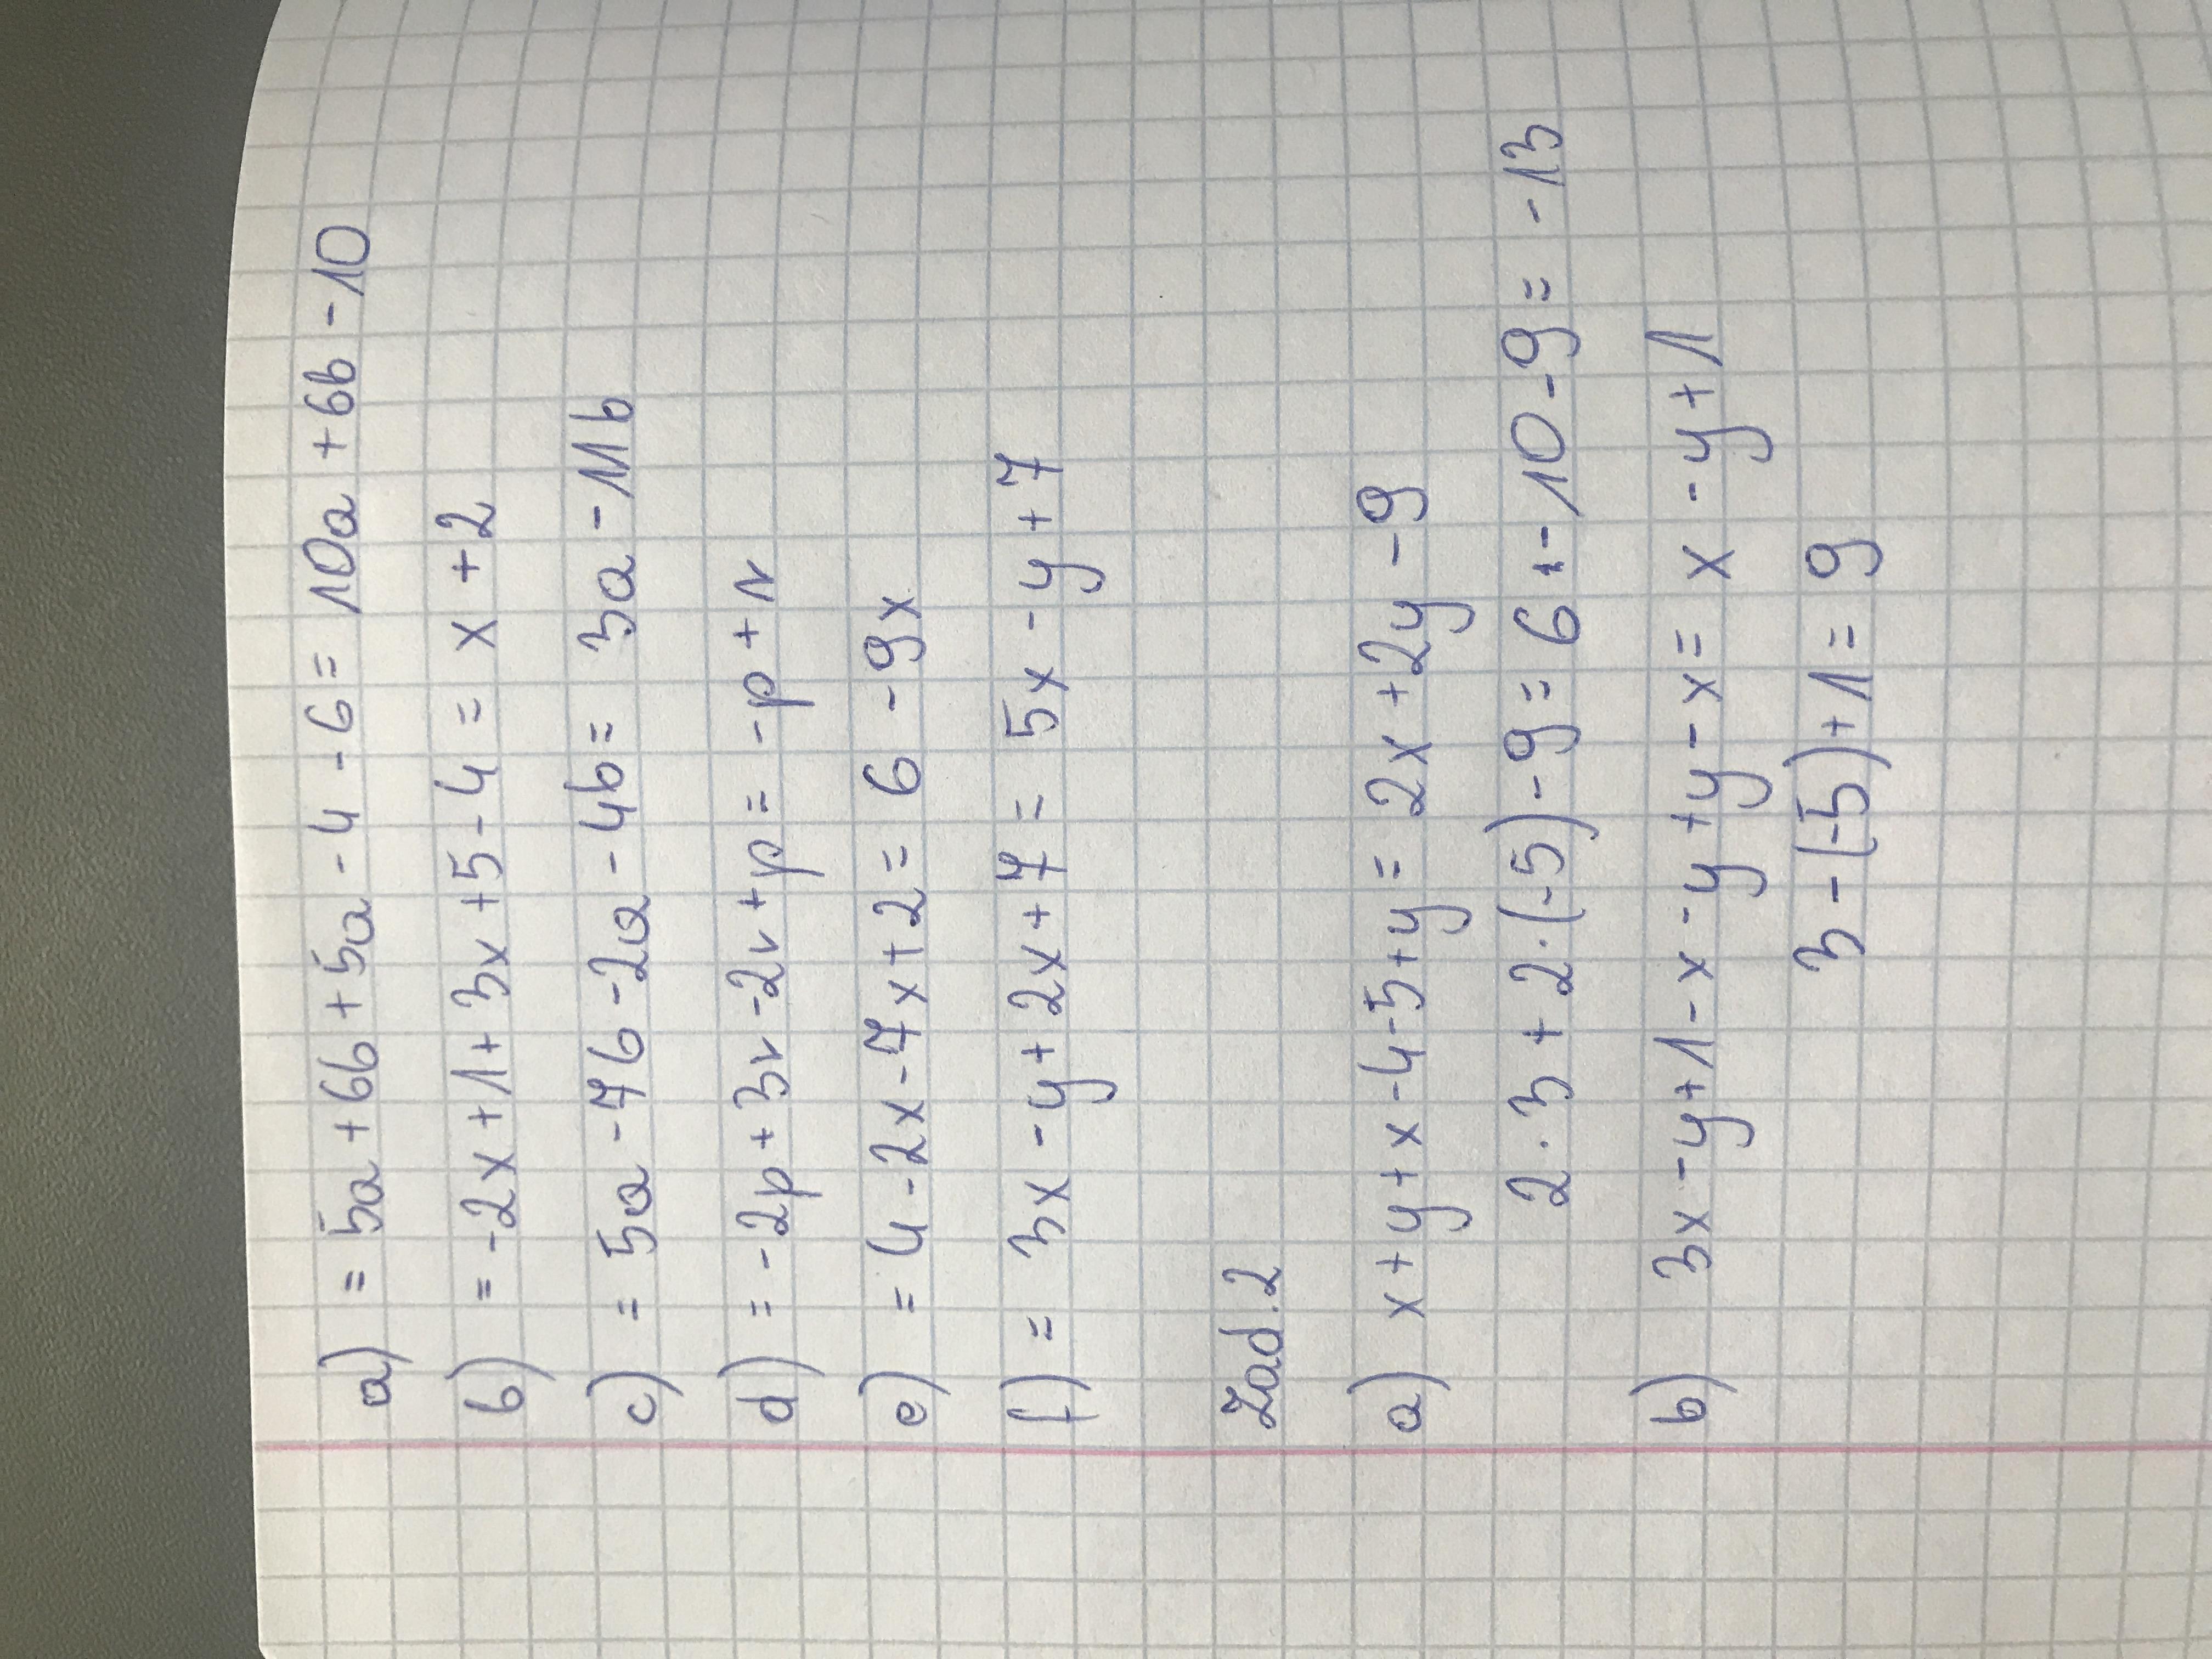 a) = 5a + 6b + 5a - 4 - 6 = 10a + 6b - 10
b) = -2x + 1 + 3x + 5 - 4 = x + 2
c) = 5a - 7b - 2a - 4b = 3a - 11b
d) = -2p + 3r - 2r + p = -p + r
e) = 4 - 2x - 7x + 2 = 6 - 9x
f) = 3x - y + 2x + 7 = 5x - y + 7
Zad. 2
a) x + y + x - 4 - 5 + y = 2x + 2y - 9
2 · 3 + 2 · (-5) - 9 = 6 + - 10 - 9 = - 13
b) 3x - y + 1 - x - y + y - x = x - y + 1
3 - (-5) + 1 = 9